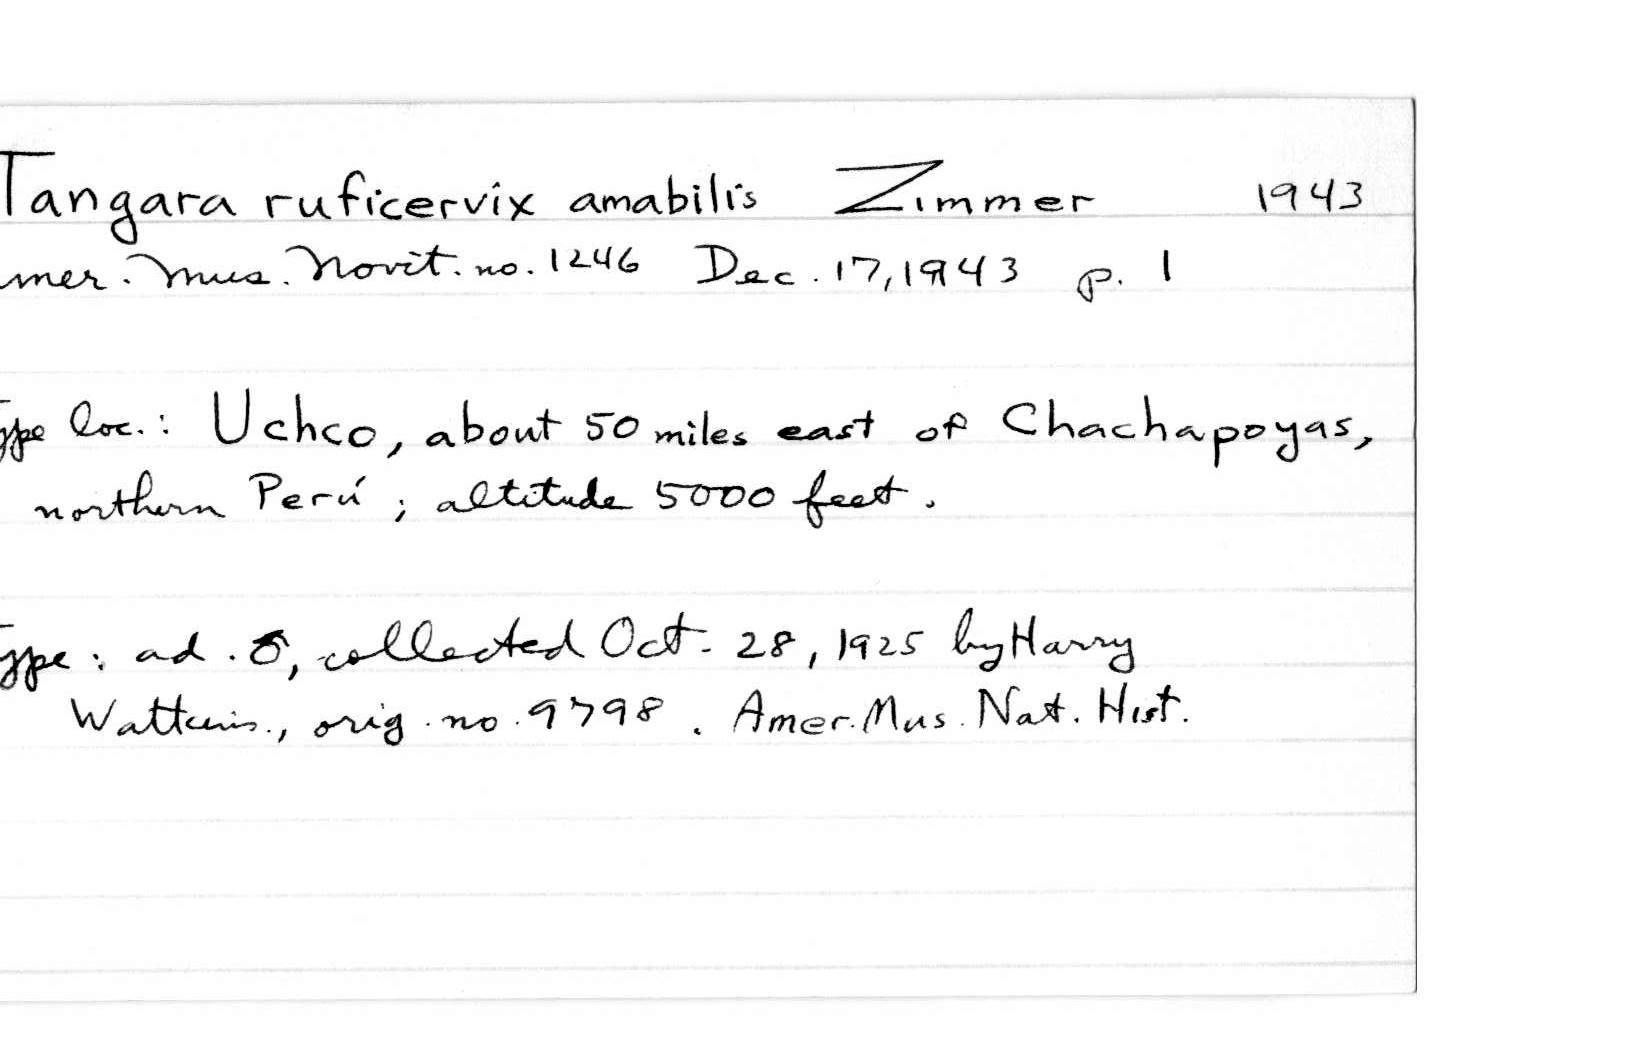 Tangara ruficervix amabilis Zimmer 1943
mer. Mus. Novit. no. 1246 Dec. 17, 1943 p. 1
ype loc.: Uchco, about 50 miles east of Chachapoyas,
northern Perú; altitude 5000 feet.
ype: ad. ♂, collected Oct. 28, 1925 by Harry
Watkins., orig. no. 9798. Amer. Mus. Nat. Hist.